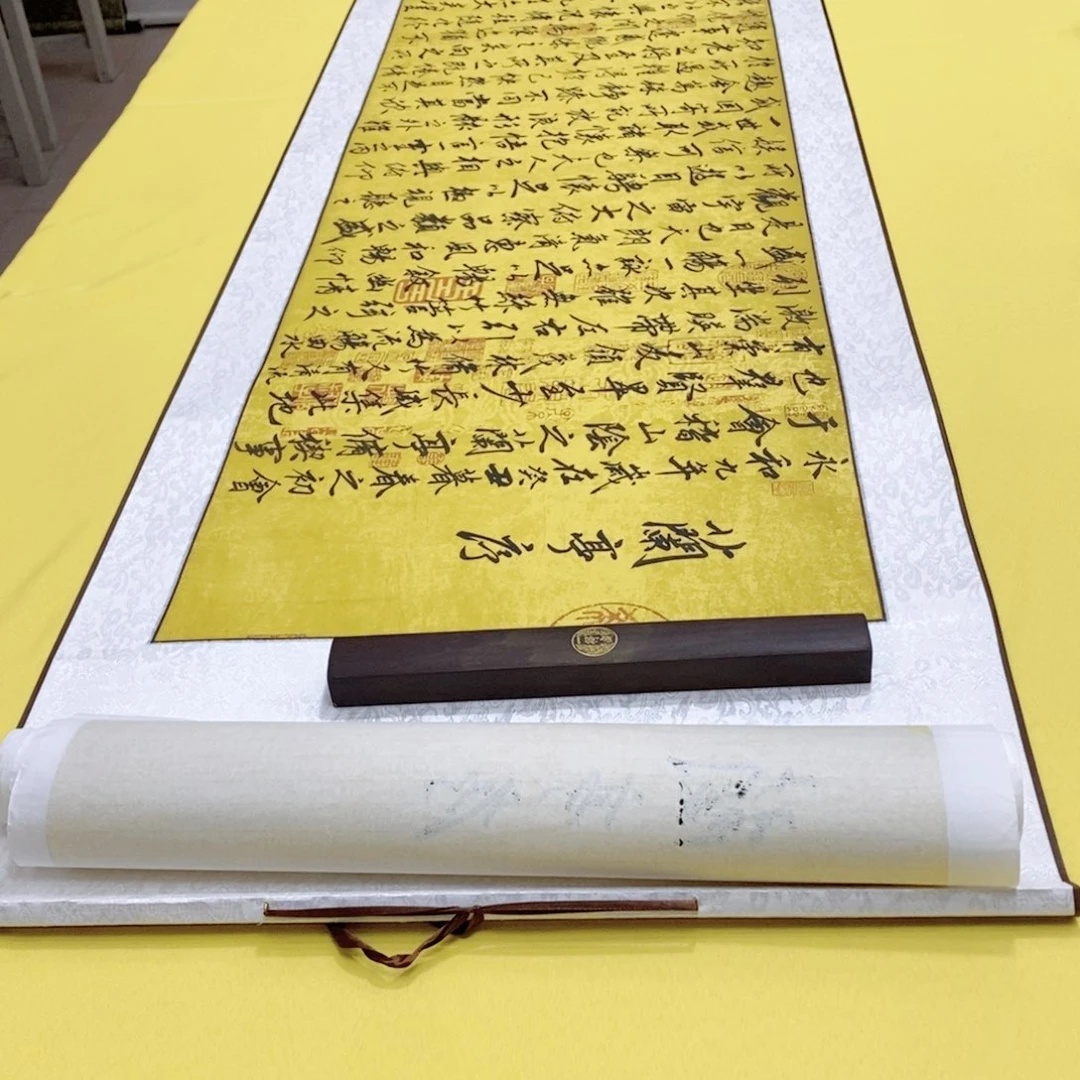 蘭亭序
永和九年歲在癸丑暮春之初會
于會稽山陰之蘭亭脩禊事
也羣賢畢至少長咸集此地
有崇山峻領茂林脩竹又有清流
激湍暎帶左右引以為流觴曲水
列坐其次雖無絲竹管弦之
盛一觴一詠亦足以暢敘幽情
是日也天朗氣清惠風和暢仰
觀宇宙之大俯察品類之盛
所以遊目騁懷足以極視聽之
娛信可樂也夫人之相與俯仰
一世或取諸懷抱悟言一室之內
或因寄所託放浪形骸之外雖
趣舍萬殊靜躁不同當其欣
於所遇暫得於己快然自足不
知老之將至及其所之既惓情
隨事遷感慨係之矣向之所